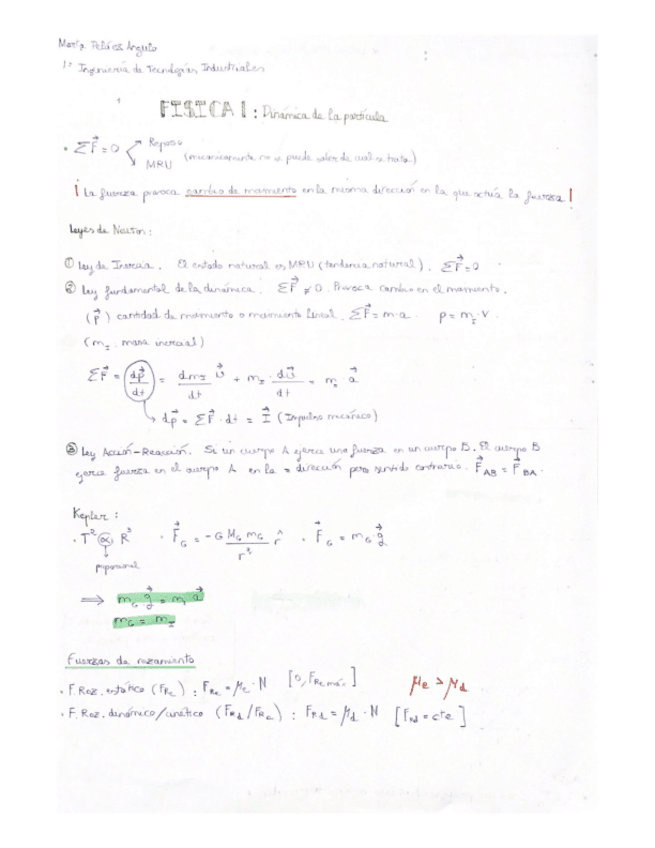 María Peláez Angulo
1º Ingeniería de Tecnologías Industriales
FISICA 1: Dinámica de la partícula
• ΣF⃗ = 0 Reposo
MRU (mecánicamente no se puede saber de cual se trata)
¡La fuerza provoca cambio de movimiento en la misma dirección en la que actúa la fuerza!
Leyes de Newton:
① Ley de Inercia. El estado natural es MRU (tendencia natural). ΣF⃗ = 0
② Ley fundamental de la dinámica. ΣF⃗ ≠ 0. Provoca cambio en el movimiento.
(p⃗) cantidad de movimiento o movimiento lineal. ΣF⃗ = m·a. p = m_I·v.
(m_I: masa inercial)
ΣF⃗ = dp⃗/dt = dm_I/dt v⃗ + m_I · dv⃗/dt = m, a⃗
dp⃗ = ΣF⃗ · dt = I⃗ (Impulso mecánico)
③ Ley Acción-Reacción. Si un cuerpo A ejerce una fuerza en un cuerpo B. El cuerpo B
ejerce fuerza en el cuerpo A en la = dirección pero sentido contrario. F⃗_AB = F⃗_BA.
Kepler:
• T² ∝ R³ • F⃗_G = -G M_G m_G / r² r̂ • F⃗_G = m_G · g⃗
proporcional
⇒ m_G g⃗ = m, a⃗
m_G = m_I
Fuerzas de rozamiento
• F. Roz. estático (F_Re): F_Re = μe · N [0, F_Re máx.] μe > μd
• F. Roz. dinámico/cinético (F_Rd/F_Rc): F_Rd = μd · N [F_Rd = cte]